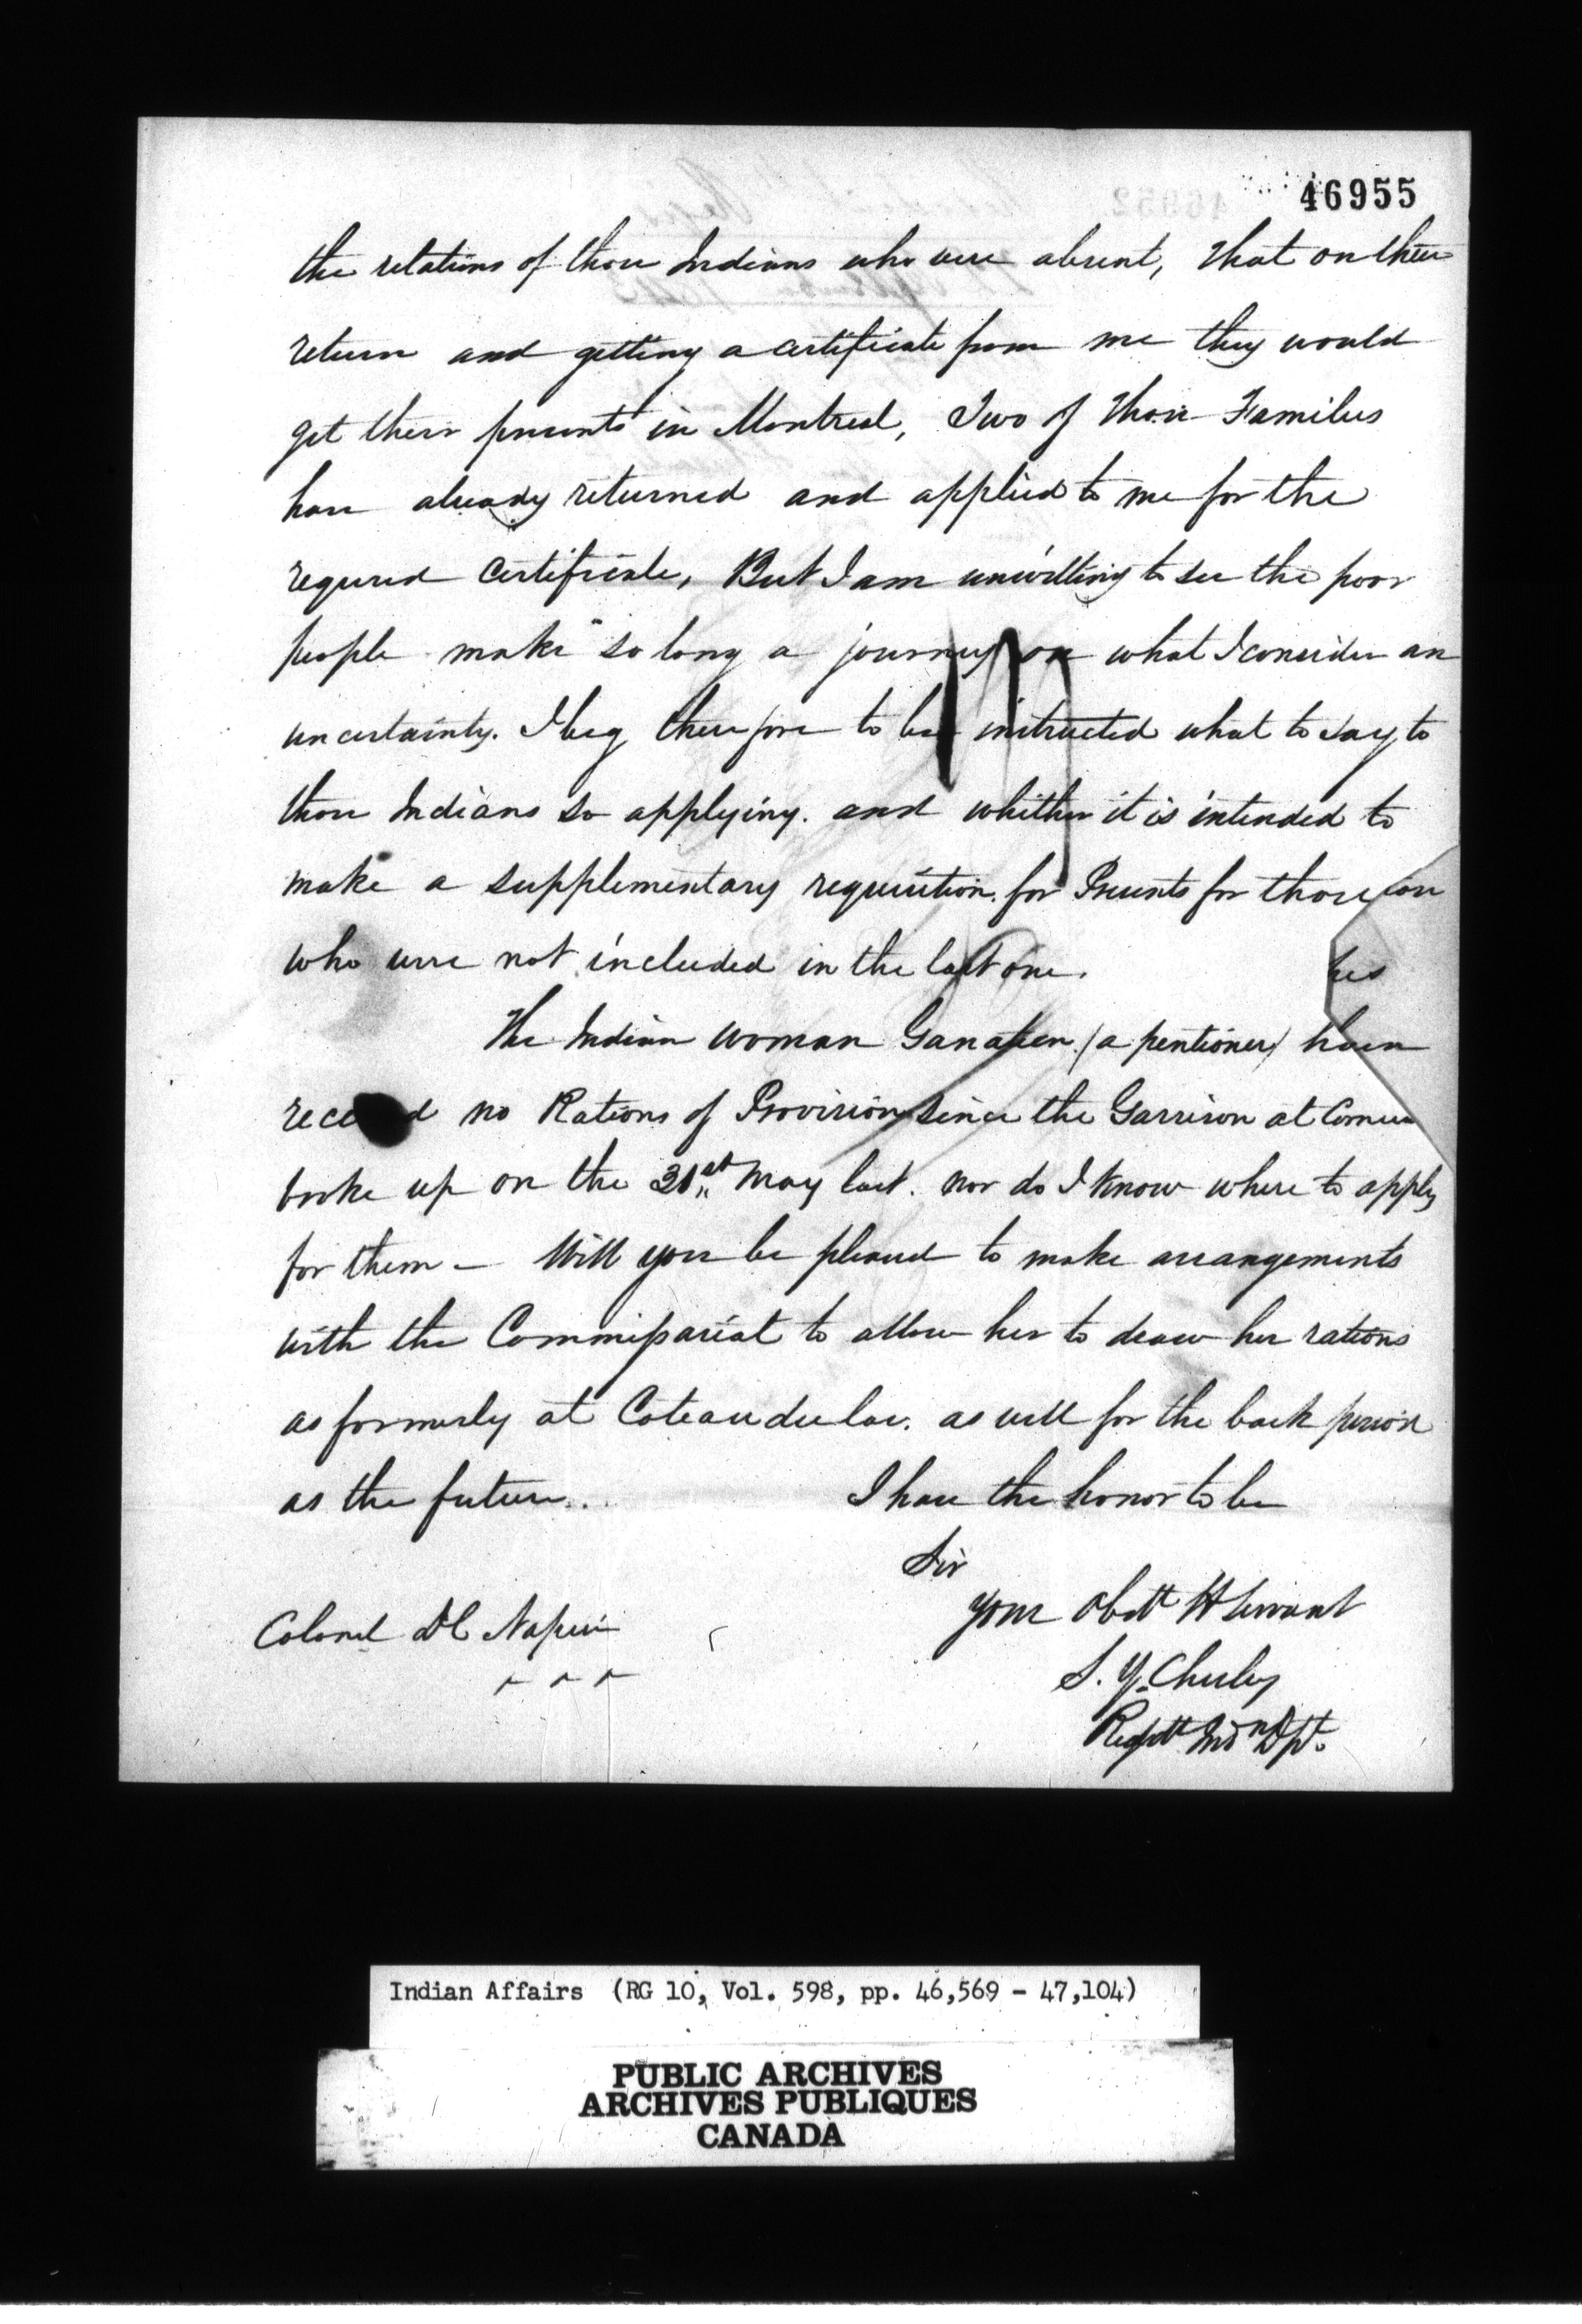 46955
the relations of those Indians who were absent, that on their
return and getting a certificate from me they would
get their presents in Montreal, Two of those Families
have already returned and applied to me for the
required certificate, But I am unwilling to see the poor
people make so long a journey on what I consider an
uncertainty. I beg therefore to be instructed what to say to
those Indians so applying. and whither it is intended to
make a supplementary requisition for Presents for those
who were not included in the last one.
The Indian Woman (a pentioner) has
received no Rations of Provision since the Garrison at
broke up on the 31st May last. nor do I know where to apply
for them – Will you be pleased to make arrangements
with the Commissariat to allow her to draw her rations
as formerly at Coteau du lac. as well for the back period
as the future..
I have the honor to be
Sir
Your Obdt H Servant
S. Y. Chesley
Indn Dpt.
Colonel DC Napier
Indian Affairs (RG 10, Vol. 598, pp. 46,569 - 47,104)
PUBLIC ARCHIVES
ARCHIVES PUBLIQUES
CANADA